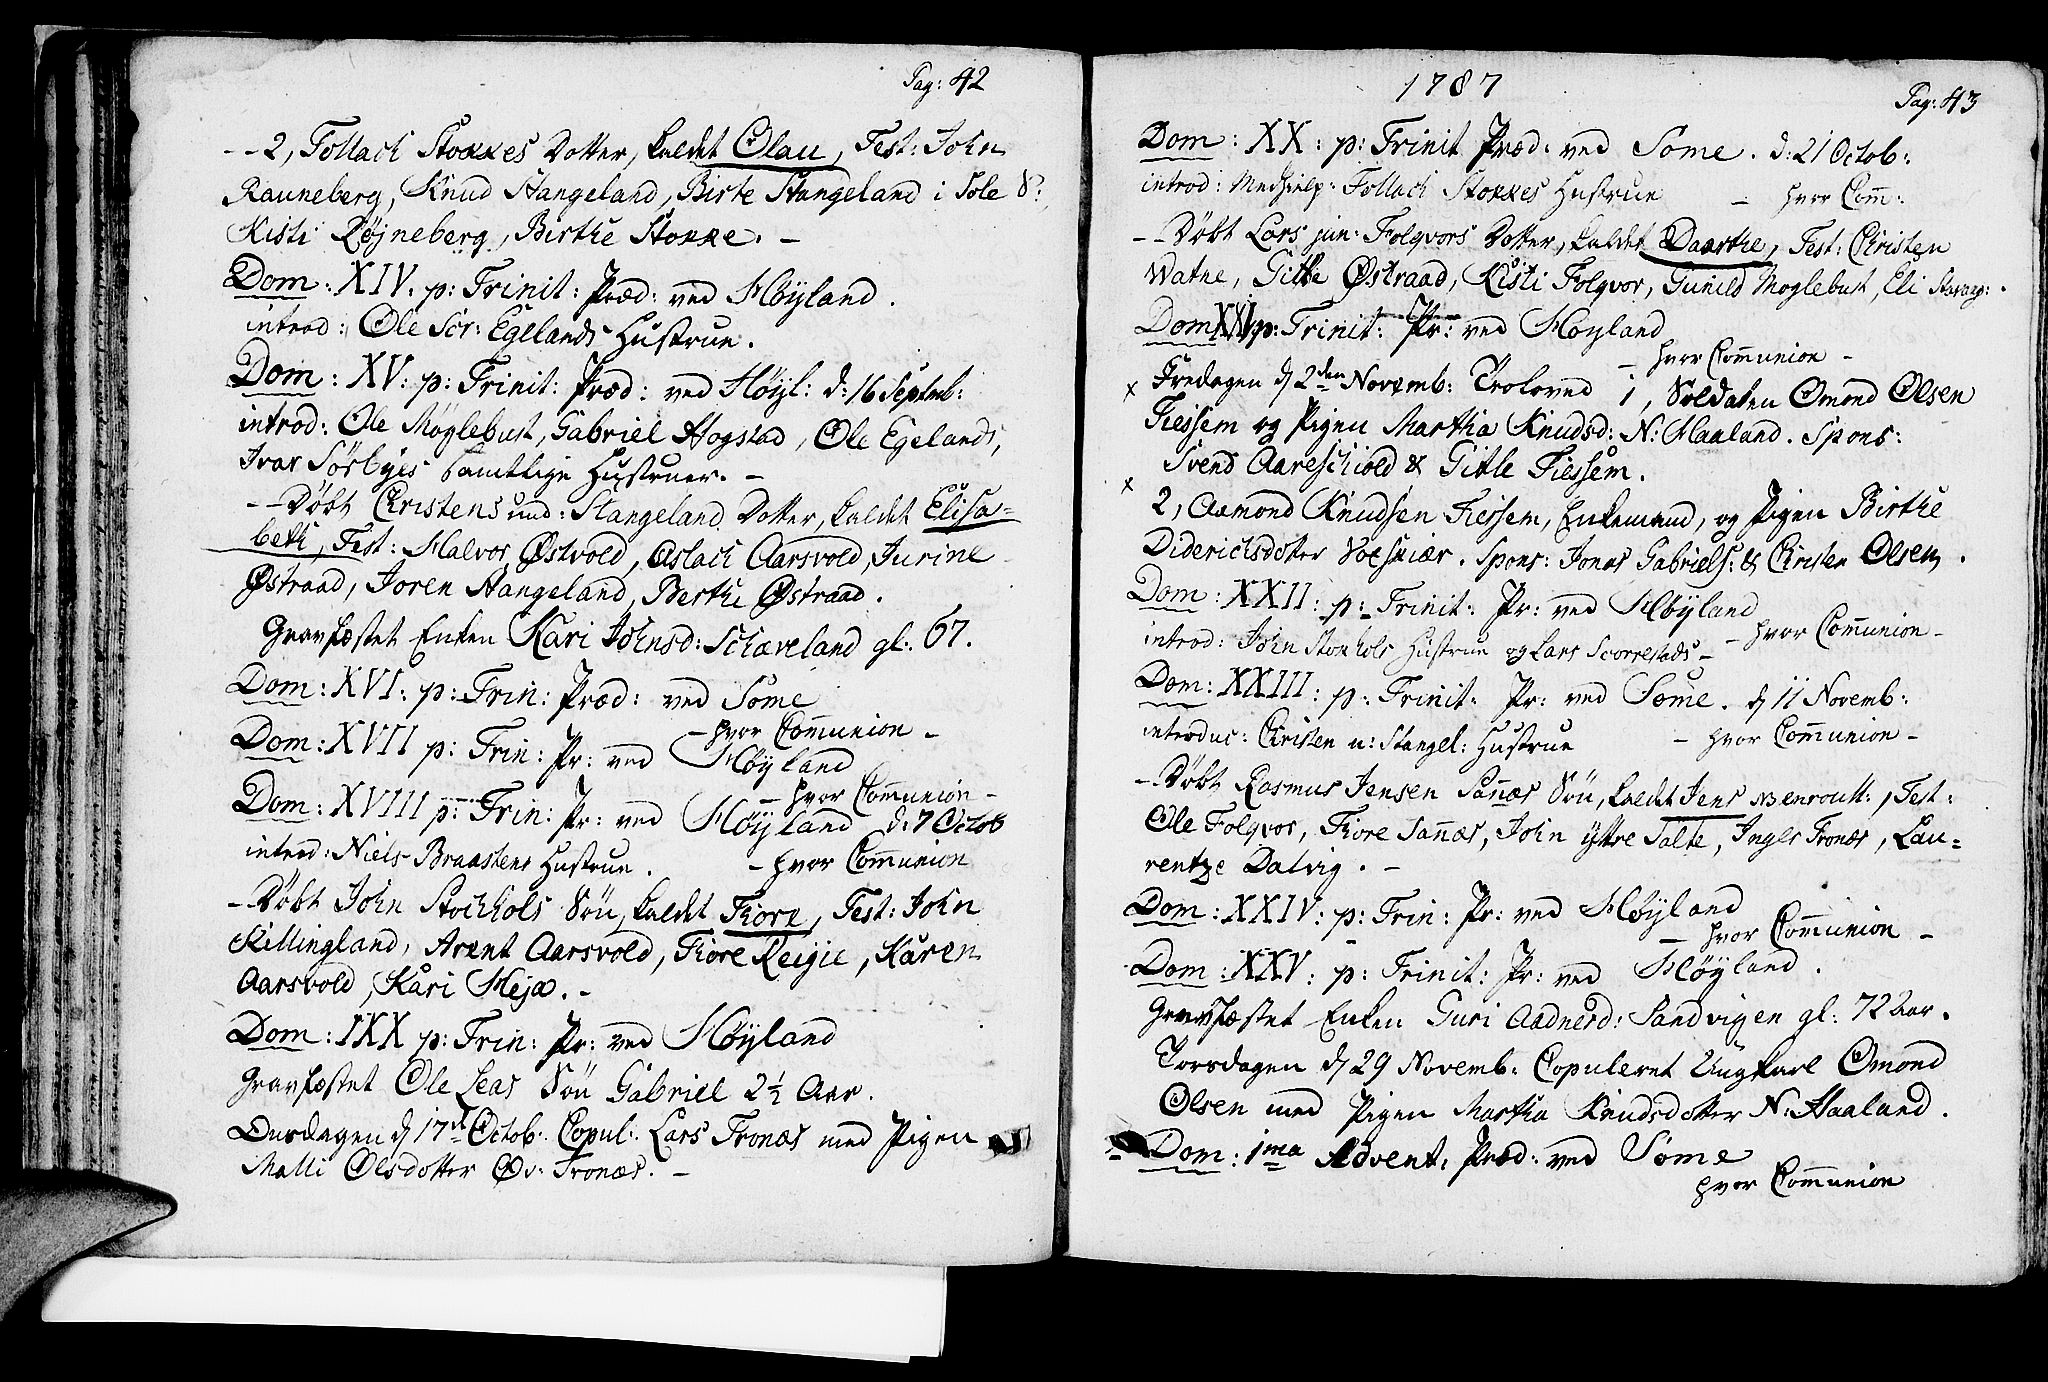 Pag: 42
- - 2, Tollach Stokkes Dotter, kaldet Olau, Test: John
Rauneberg, Knud Stangeland, Birte Stangeland i Sole S:
Kisti Røjneberg, Birthe Stokke. -
Dom: XIV. p: Trinit: Præd: ved Høyland.
introd: Ole Sør: Egelands Hustrue.
Dom: XV: p: Trinit: Præd: ved Høyl: d: 16 Septemb:
introd: Ole Møglebust, Gabriel Hogstad, Ole Egelands,
Ivar Sörbyes samtlige Hustruer. -
- - Döbt Christens und: Stangeland Dotter, kaldet Elisa-
beth, Test: Halvor Østvold, Aslach Aarsvold, Jurine
Østraad, Joren Stangeland, Berthe Østraad.
Gravfæstet Enken Kari Johnsd: Schæveland gl: 67.
Dom: XVI: p: Trin: Præd: ved Some
- hvor Com̄union -
Dom: XVII p: Trin: Pr: ved Høyland
- hvor Com̄union -
Dom: XVIII p: Trin: Pr: ved Høyland d: 7 Octob
introd: Niels Braastens Hustrue. - hvor Com̄union
- Döbt John Stochhols Sön, kaldet Tiore, Test: John
Killingland, Arent Aarsvold, Tiore Reigie, Karen
Aarsvold, Kari Hejæ. -
Dom: IXX p: Trin: Pr: ved Høyland
Gravfæstet Ole Leas Sön Gabriel 2½ Aar.
Onsdagen d 17d Octob: Copul: Lars Tronæs med Pigen
Malli Olsdotter Øv: Tronæs. -
1787
Pag: 43
Dom: XX: p: Trinit Præd: ved Some. d: 21 Octob:
introd: Medhielp: Tollach Stokkes Hustrue - hvor Com̄:
- - Döbt Lars jun: Folqvors Dotter, kaldet Daarthe, Test: Christen
Watne, Gitle Østraad, Kisti Folqvor, Gunild Moglebust, Eli Stavang:
Dom XXI p: Trinit: Pr: ved Høyland
- hvor Com̄union -
x Fredagen d 2den Novemb: Troloved 1, Soldaten Omond Olsen
Tiessem og Pigen Martha Knudsd: N: Haaland. Spons:
Svend Aareschiold & Gitle Tiessem.
x 2, Aamond Knudsen Tiessem, Enkemand, og Pigen Birthe
Diderichsdotter Soeskiær. Spons: Jonas Gabriels: & Christen Olsen.
Dom: XXII: p: Trinit: Pr: ved Høyland
- hvor Com̄union -
introd: John Stokhols Hustrue og Lars Scorrestads -
Dom: XXIII: p: Trinit: Pr: ved Some. d 11 Novemb:
introduc: Christen u: Stangel: Hustrue - hvor Com̄union -
- Döbt Rasmus Jensen San̄æs Sön, kaldet Jens, Test:
Ole Folqvor, Tiore San̄æs, John Yttre Salte, Inger Tronæs, Lau-
rentze Dalvig. -
Dom: XXIV: p: Trin: Pr: ved Høyland
- hvor Com̄union -
Dom: XXV: p: Trinit: Pr: ved Høyland.
Gravfæstet Enken Guri Aadnesd: Sandvigen gl: 72 Aar.
Torsdagen d 29 Novemb: Copuleret Ungkarl Omond
Olsen med Pigen Martha Knudsdotter N: Haaland.
Dom: 1ma Advent, Præd: ved Some
hvor Com̄union